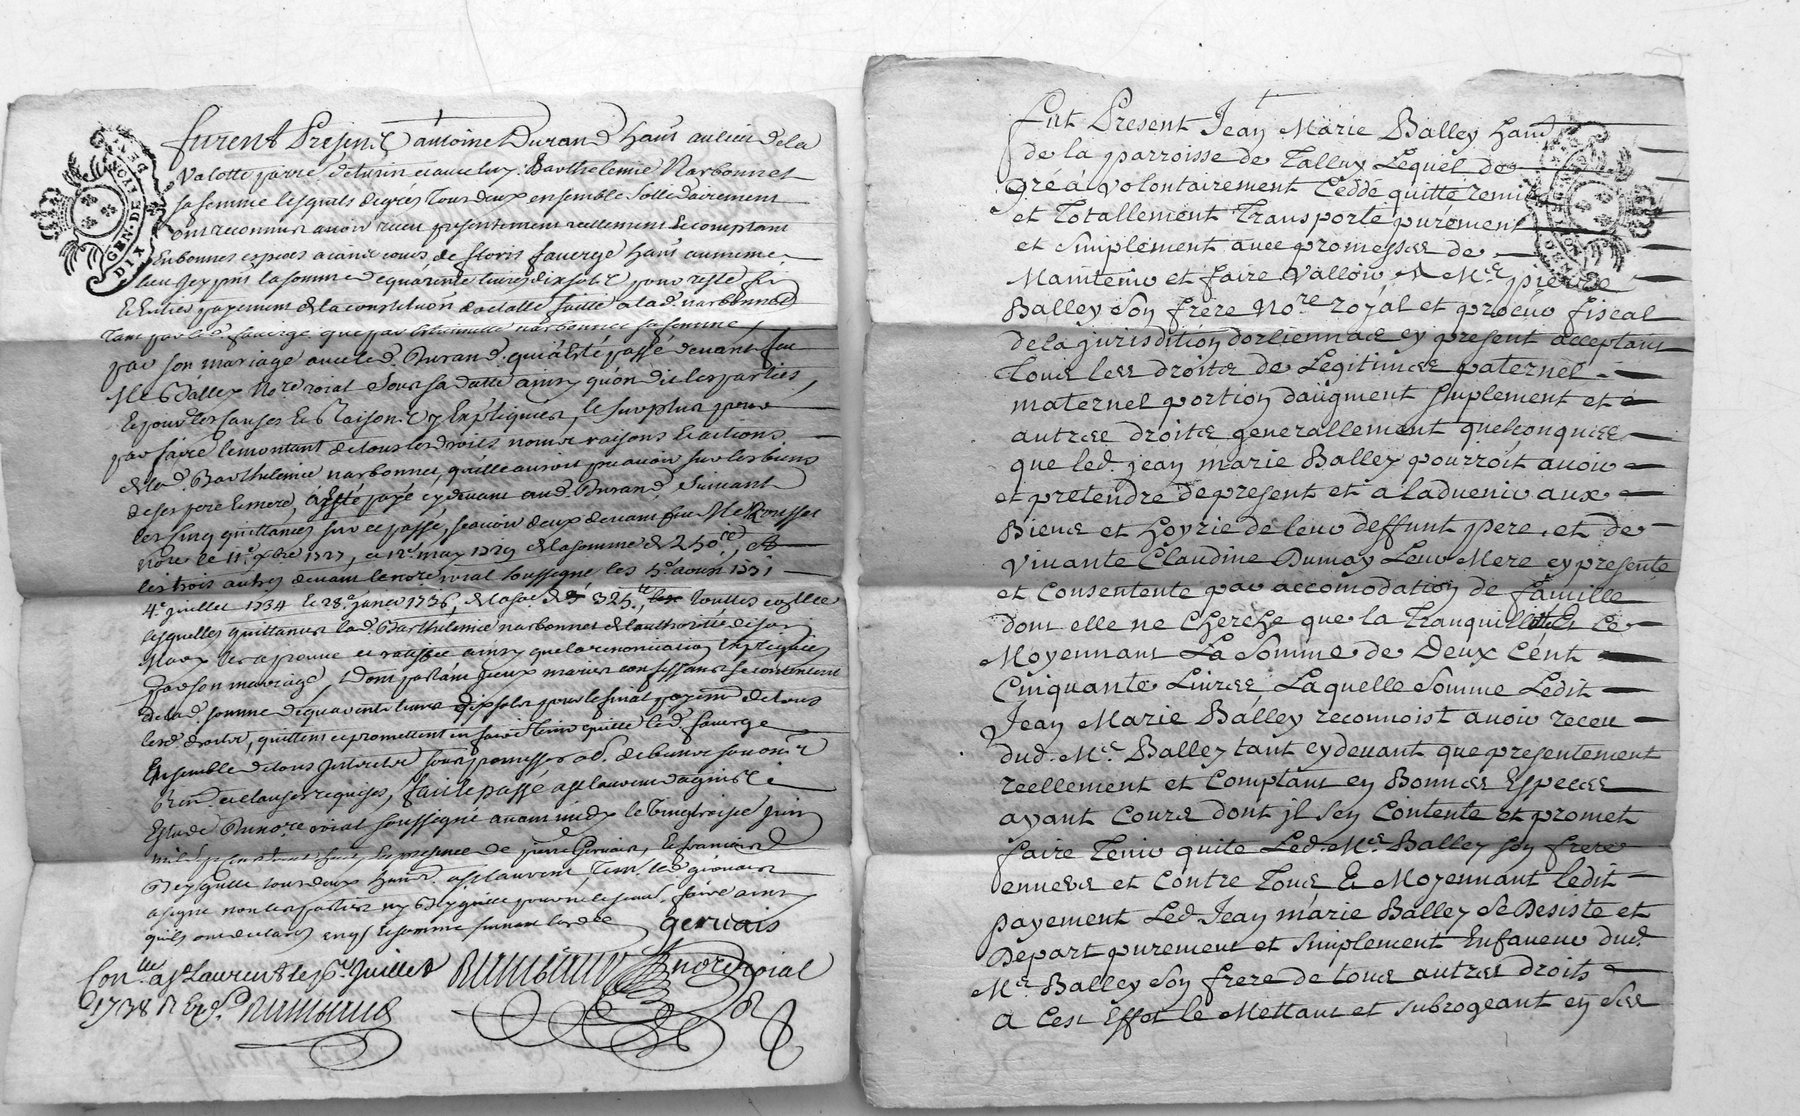 furent Presens antoine Durand hant au lieu de la
Valotte parre. et avec luy Barthelemie Narbonnet
sa femme lesquels de grés tous deux ensemble Sollidairement
ont reconnus avoir receu presentement reellement et comptant
En bonnes especes aiant cours de fauerge hant au meme
lieu Jcy pnt la somme de quarente livres dix sols pour reste
Entier payement de la constitution faitte a lad. narbonnet
tant par led. fauerge que par narbonnet sa femme
par son mariage avec led. Durand qui a été passé devant feu
Me Dalley Nore. roial sous sa datte ainsy qu'on dit les parties
Et pour les causes Et Raisons y Expliquées, le surplus pour
par faire le montant de tous les droits noms raisons et actions
de lad. Barthelemie narbonnet, qu'elle auroit pu avoir sur les biens
de ses pere et mere, a esté payé cy devant aud. Durand, suivant
les cinq quittances sur ce passé, scavoir deux devant feu Me Rousset
nore le 11e. xbre 1727, et 12e. may 1729 de la somme de 250
les trois autres devant le nore roial soussigné les 5e avril 1731
4e juillet 1734 et 28e janvr 1736, de la so. de 325 toutes
asquelles quittances lad. Barthelemie narbonnet de l'authorité de son
Mary les aprouve et ratiffie ainsy que la renonciation Expliquée
par son mariage, Dont partant Jceux mariés se contentent
de lad. somme de quarente livres dix sols pour le final payemt de tous
lesd. droits, quittent et promettent en faire tenir quitte led. fauerge
Ensemble de tous sous promesses ob.
Ren. et clauses requises, fait et passé a st laurent dagnis
Estude du nore roial soussigné avant midy le vingt troise Juin
mil sept cent trente huit, En presence de pierre Gervais, et françois
tous deux hants. a st laurent, tem. led. gervais
a signé non les parties ny pour ne le scavoir faire ainsy
qu'ils ont declaré enq. et sommé suivant l'ordce
gervais
Conlle. a st Laurent le juillet
1738 R
nore roial
Fut Present Jean Marie Balley hant
de la parroisse de Talluy Lequel de
gré à volontairement Cedde quitte remis
et Totallement Transporté purement
et simplement avec promesses de
Maintenir et faire valloir A Me pierre
Balley son frere Nore royal et procur fiscal
de la jurisdition dorliennas cy present acceptant
Tous les droits de Legitimes paternel
maternel portion daügment suplement et
autres droits generallement quelconques
que led. jean marie Balley pourroit avoir
et pretendre de present et a ladvenir aux
Biens et hoyrie de leur deffunt pere, et de
vivante Claudine Dumay Leur Mere cy presente
et Consentente par accomodation de famille
dont elle ne cherche que la Tranquillité Et ce
Moyennant La Somme de Deux Cent
Cinquante Livres Laquelle Somme Ledit
Jean Marie Balley reconnoist avoir receu
dud. Me. Balley tant cy devant que presentement
reellement et comptant en Bonnes Especes
ayant Cours dont jl sen Contente et promet
faire Tenir quite Led. Me Balley son frere
envers et contre Tous Et Moyennant ledit
payement Led. Jean marie Balley se Desiste et
Depart purement et simplement En faveur dud.
Me Balley son frere de tous autres droits
A Cest Effet le Mettant et subrogeant en ses